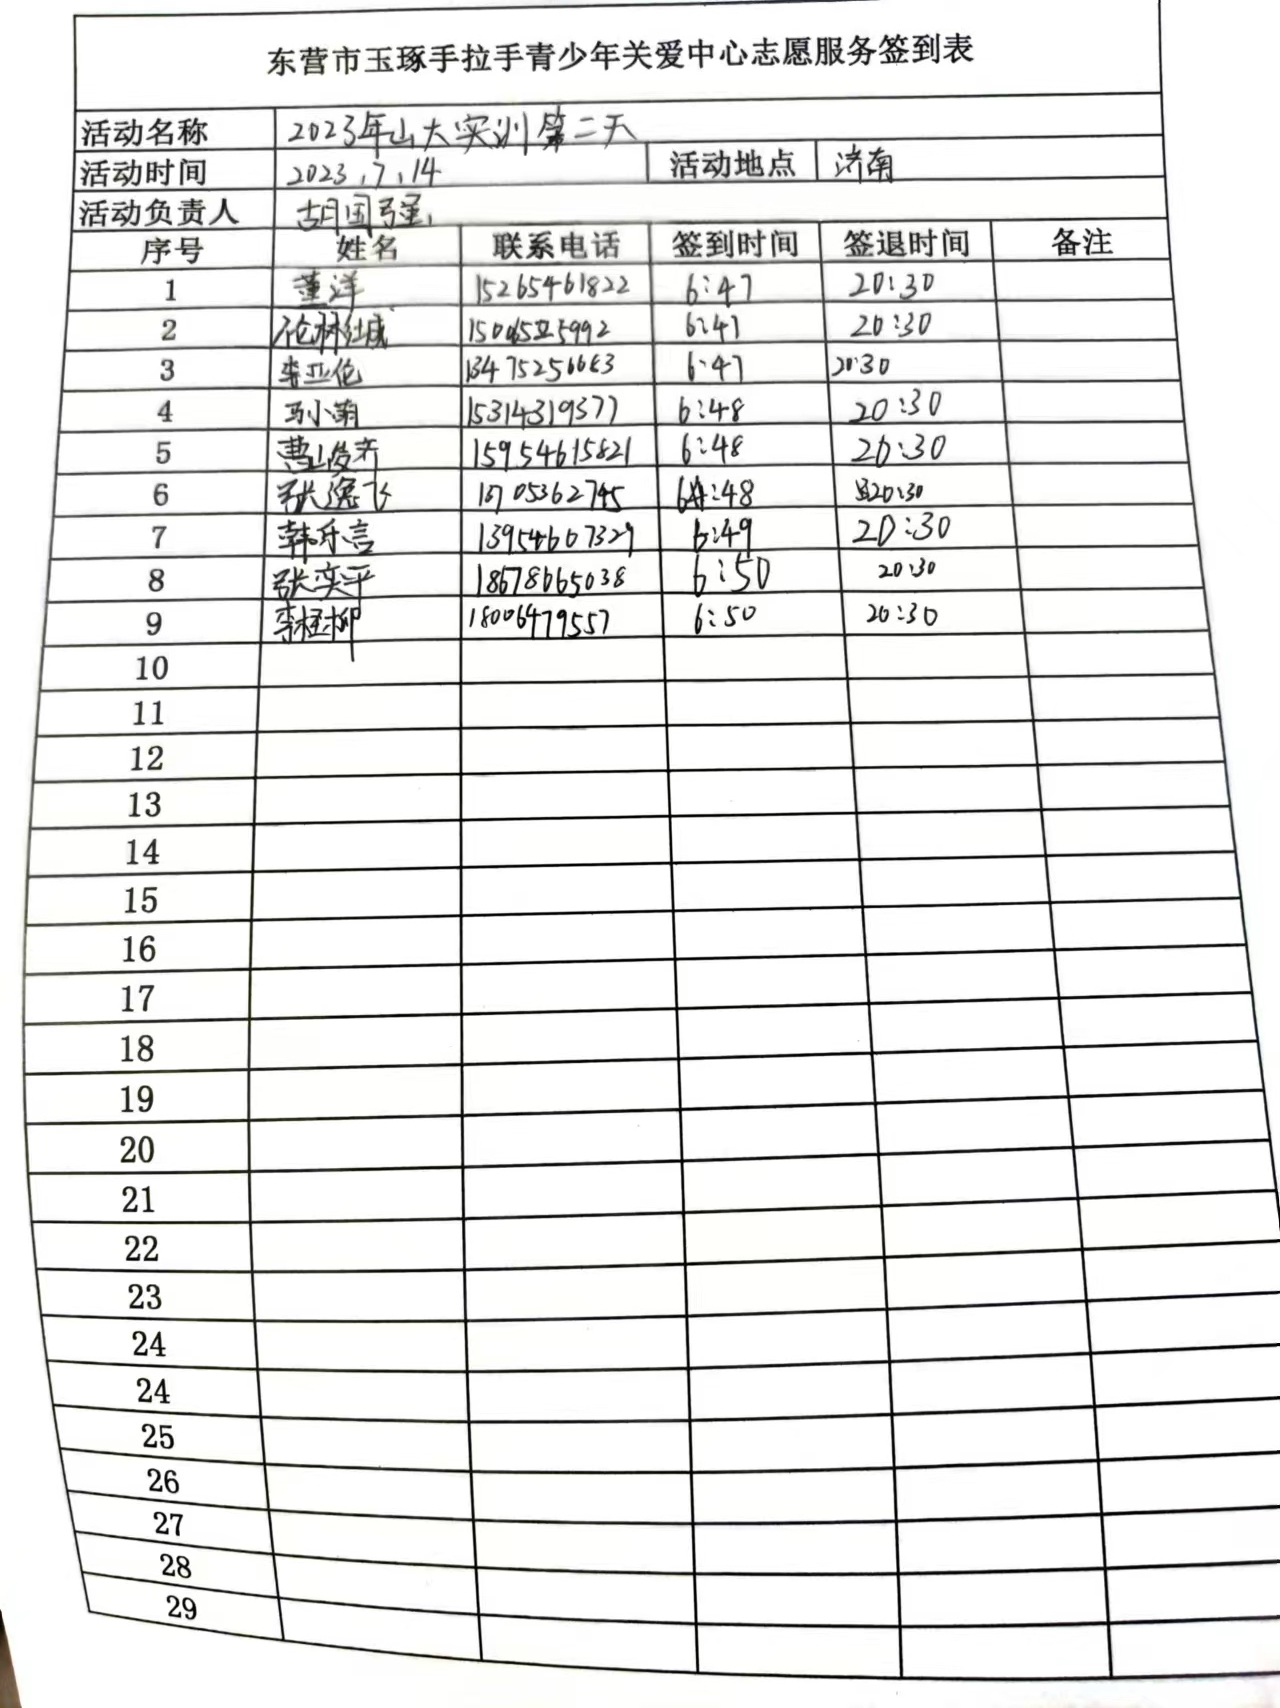 东营市玉琢手拉手青少年关爱中心志愿服务签到表
活动名称 2023年山大实训第二天
活动时间 2023.7.14 活动地点 济南
活动负责人 胡国强
序号 姓名 联系电话 签到时间 签退时间 备注
1 董洋 15265461822 6:47 20:30
2 6:47 20:30
3 李亚伦 6:47 20:30
4 马小萌 15314319377 6:48 20:30
5 曹峻齐 15954615821 6:48 20:30
6 张逸飞 6:48 20:30
7 韩乐言 13954607329 6:49 20:30
8 张奕平 18678665038 6:50 20:30
9 李柽柳 18006479557 6:50 20:30
10
11
12
13
14
15
16
17
18
19
20
21
22
23
24
24
25
26
27
28
29